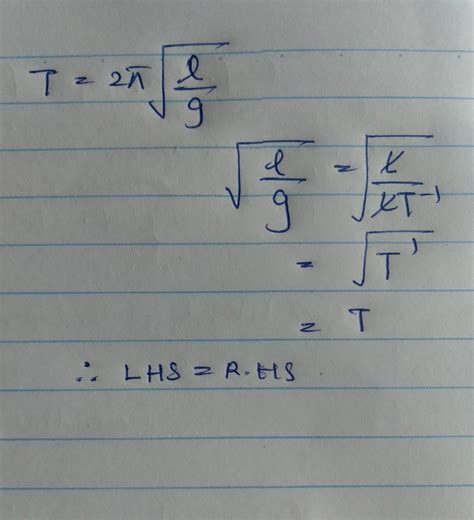 T = 2π√(l/g)
√(l/g) = √(L/LT⁻¹)
= √T¹
= T
∴ LHS = R.HS.